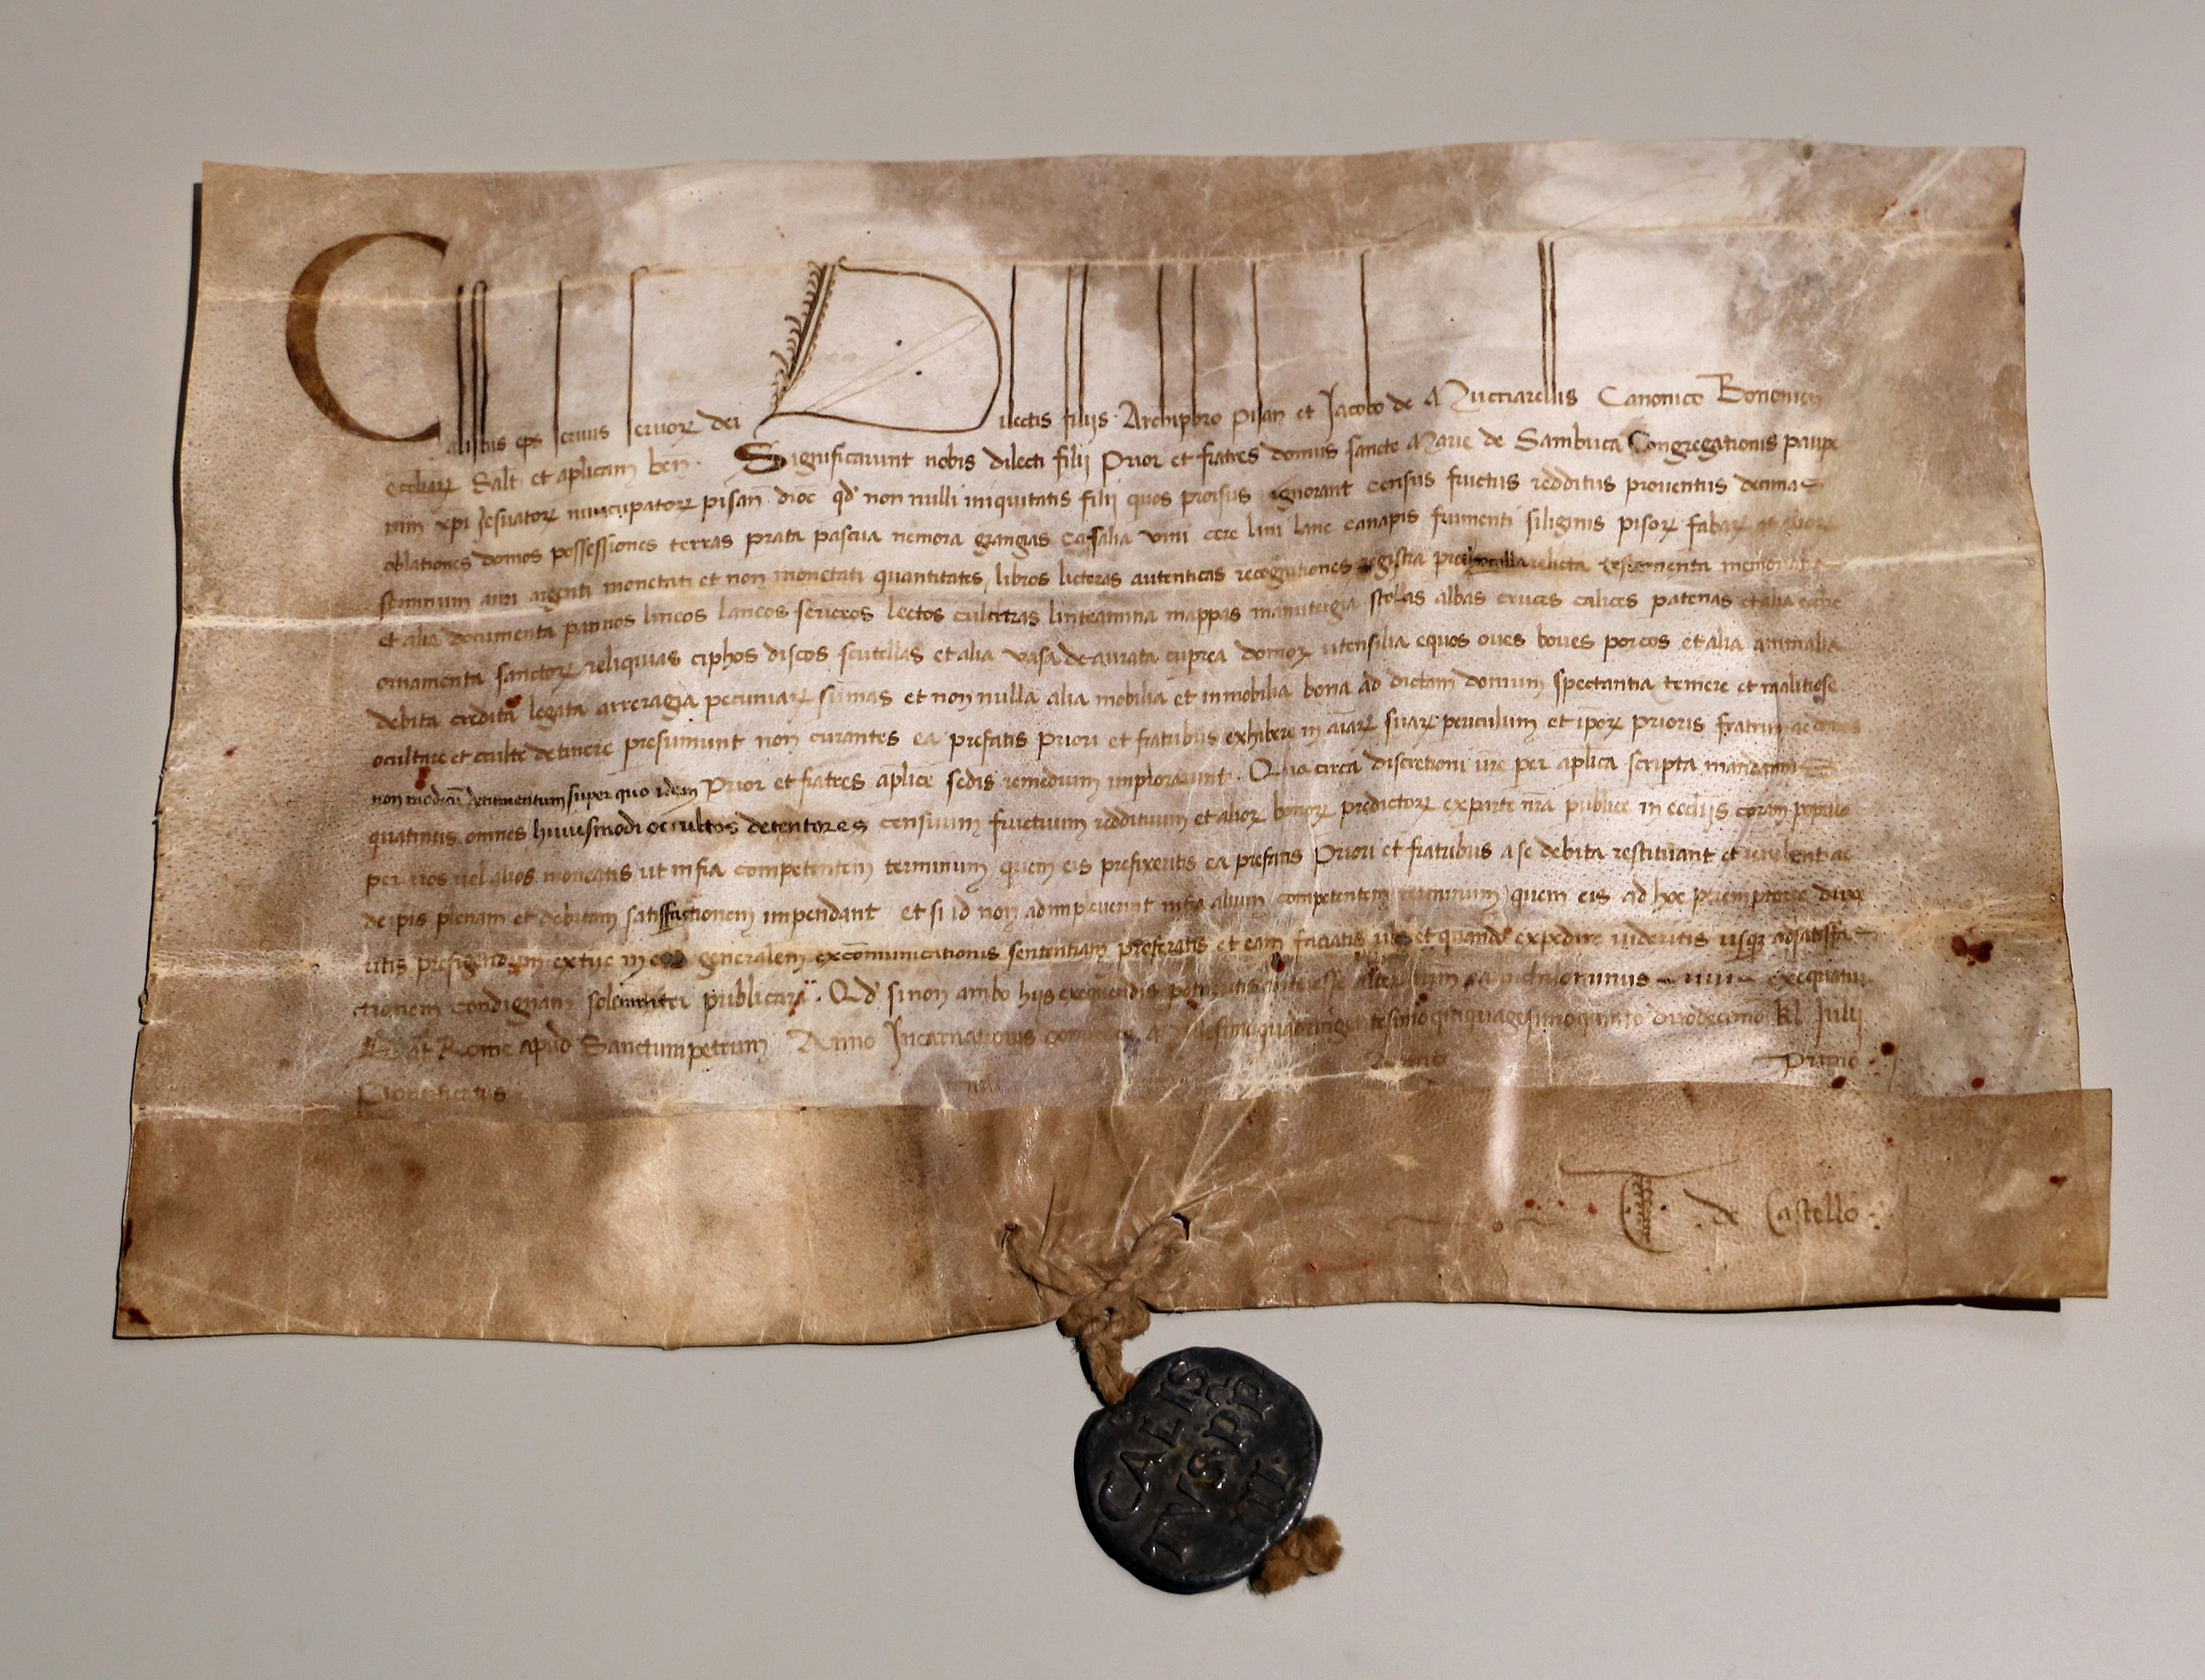 Calistus eps servus servoꝝ dei Dilectis filijs Archipbro pisan et Jacobo de Mucciarellis Canonico Bononien
eccliaꝝ Salt et aplicam ben Significarunt nobis dilecti filij Prior et fratres domus sancte Marie de Sambuca Congregationis paupe
rum xpi Jesuatoꝝ nuncupatoꝝ pisan dioc qd non nulli iniquitatis filij quos prorsus ignorant census fructus redditus proventus decimas
oblationes domos possessiones terras prata pascua nemora grangias casalia vini cere lini lane canapis frumenti siliginis pisoꝝ fabaꝝ et alioꝝ
seminum auri argenti monetati et non monetati quantitates libros licteras autenticas recognitiones registra prothocolla relicta testamenta
et alia documenta pannos lineos laneos sericeos lectos culcitras linteamina mappas manutergia stolas albas cruces calices patenas et alia eccle
ornamenta sanctoꝝ reliquias ciphos discos scutellas et alia vasa deaurata cuprea domoꝝ utensilia equos oves boves porcos et alia animalia
debita credita legata arreragia pecuniaꝝ sumas et non nulla alia mobilia et inmobilia bona ad dictam domum spectantia temere et malitiose
ocultare et occulte detinere presumunt non curantes ea prefatis Priori et fratribus exhibere in aiaꝝ suaꝝ periculum et ipoꝝ prioris fratrum ac
non modicū detrimentum super quo idem Prior et fratres aplice sedis remedium implorarunt. Quo circa discretioni vre per aplica scripta mandamus
quatinus omnes huiusmodi occultos detentores censuum fructuum reddituum et alioꝝ bonoꝝ predictoꝝ ex parte nra publice in ecclijs coram populo
per vos vel alios moneatis ut infra competentem terminum quem eis prefixeritis ea prefatis Priori et fratribus a se debita restituant et revelent ac
de ipis plenam et debitam satisfactionem impendant et si id non adimpleverint infra alium competentem terminum quem eis ad hoc peremptorie duxe
ritis prefigendum extunc in eos generalem excōmunicationis sententiam proferatis et eam faciatis ubi et quando expedire videritis usqꝫ ad satisfa
ctionem condignam solemniter publicari. Qd si non ambo hijs exequendis potueritis interesse alter exequatur
Dat Rome apud Sanctumpetrum Anno Incarnationis quinquagesimoquinto duodecimo kl Julij
Pontificatus nri Anno Primo
de Castello
CALIS
TVS PP
III